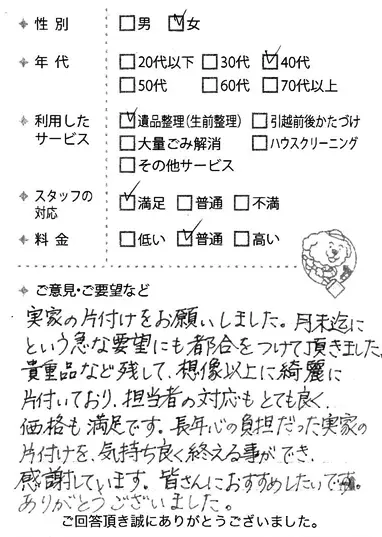 性別 □男 ☑女
年代 □20代以下 □30代 ☑40代
□50代 □60代 □70代以上
利用したサービス ☑遺品整理(生前整理) □引越前後かたづけ
□大量ごみ解消 □ハウスクリーニング
□その他サービス
スタッフの対応 ☑満足 □普通 □不満
料金 □低い ☑普通 □高い
ご意見・ご要望など
実家の片付けをお願いしました。月末迄に
という急な要望にも都合をつけて頂きました。
貴重品など残して、想像以上に綺麗に
片付いており、担当者の対応もとても良く、
価格も満足です。長年心の負担だった実家の
片付けを、気持ち良く終える事ができ、
感謝しています。皆さんにおすすめしたいです。
ありがとうございました。
ご回答頂き誠にありがとうございます。